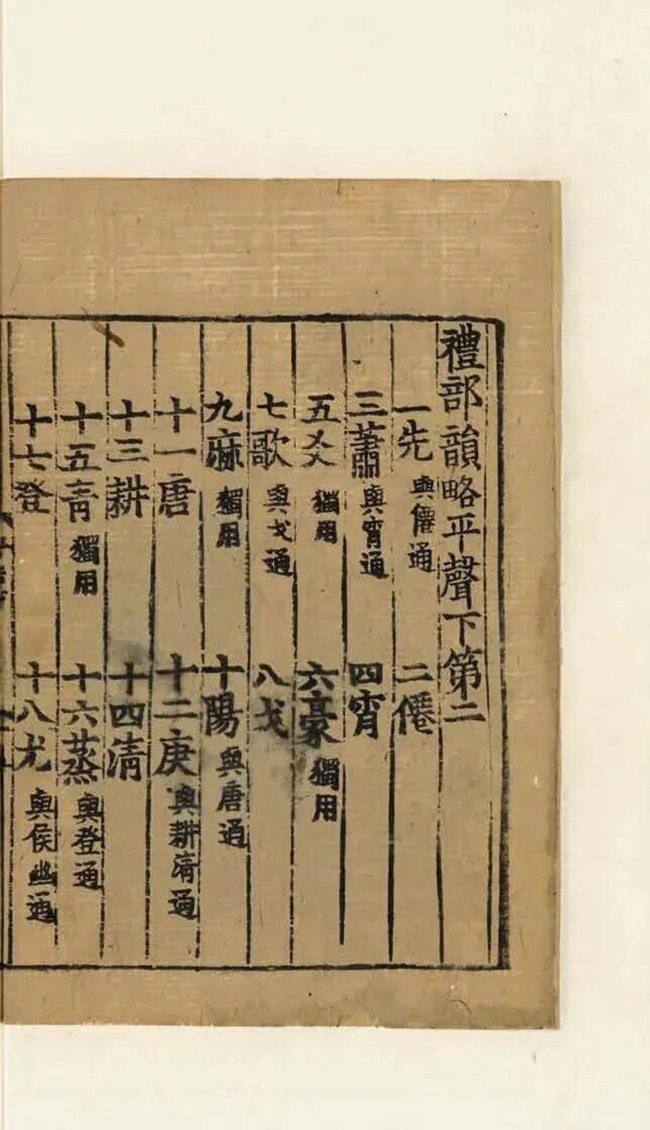 禮部韻略平聲下第二
一先與僊通 二僊
三蕭與宵通 四宵
五爻獨用 六豪獨用
七歌與戈通 八戈
九麻獨用 十陽與唐通
十一唐 十二庚與耕清通
十三耕 十四清
十五青獨用 十六蒸與登通
十七登 十八尤與侯幽通